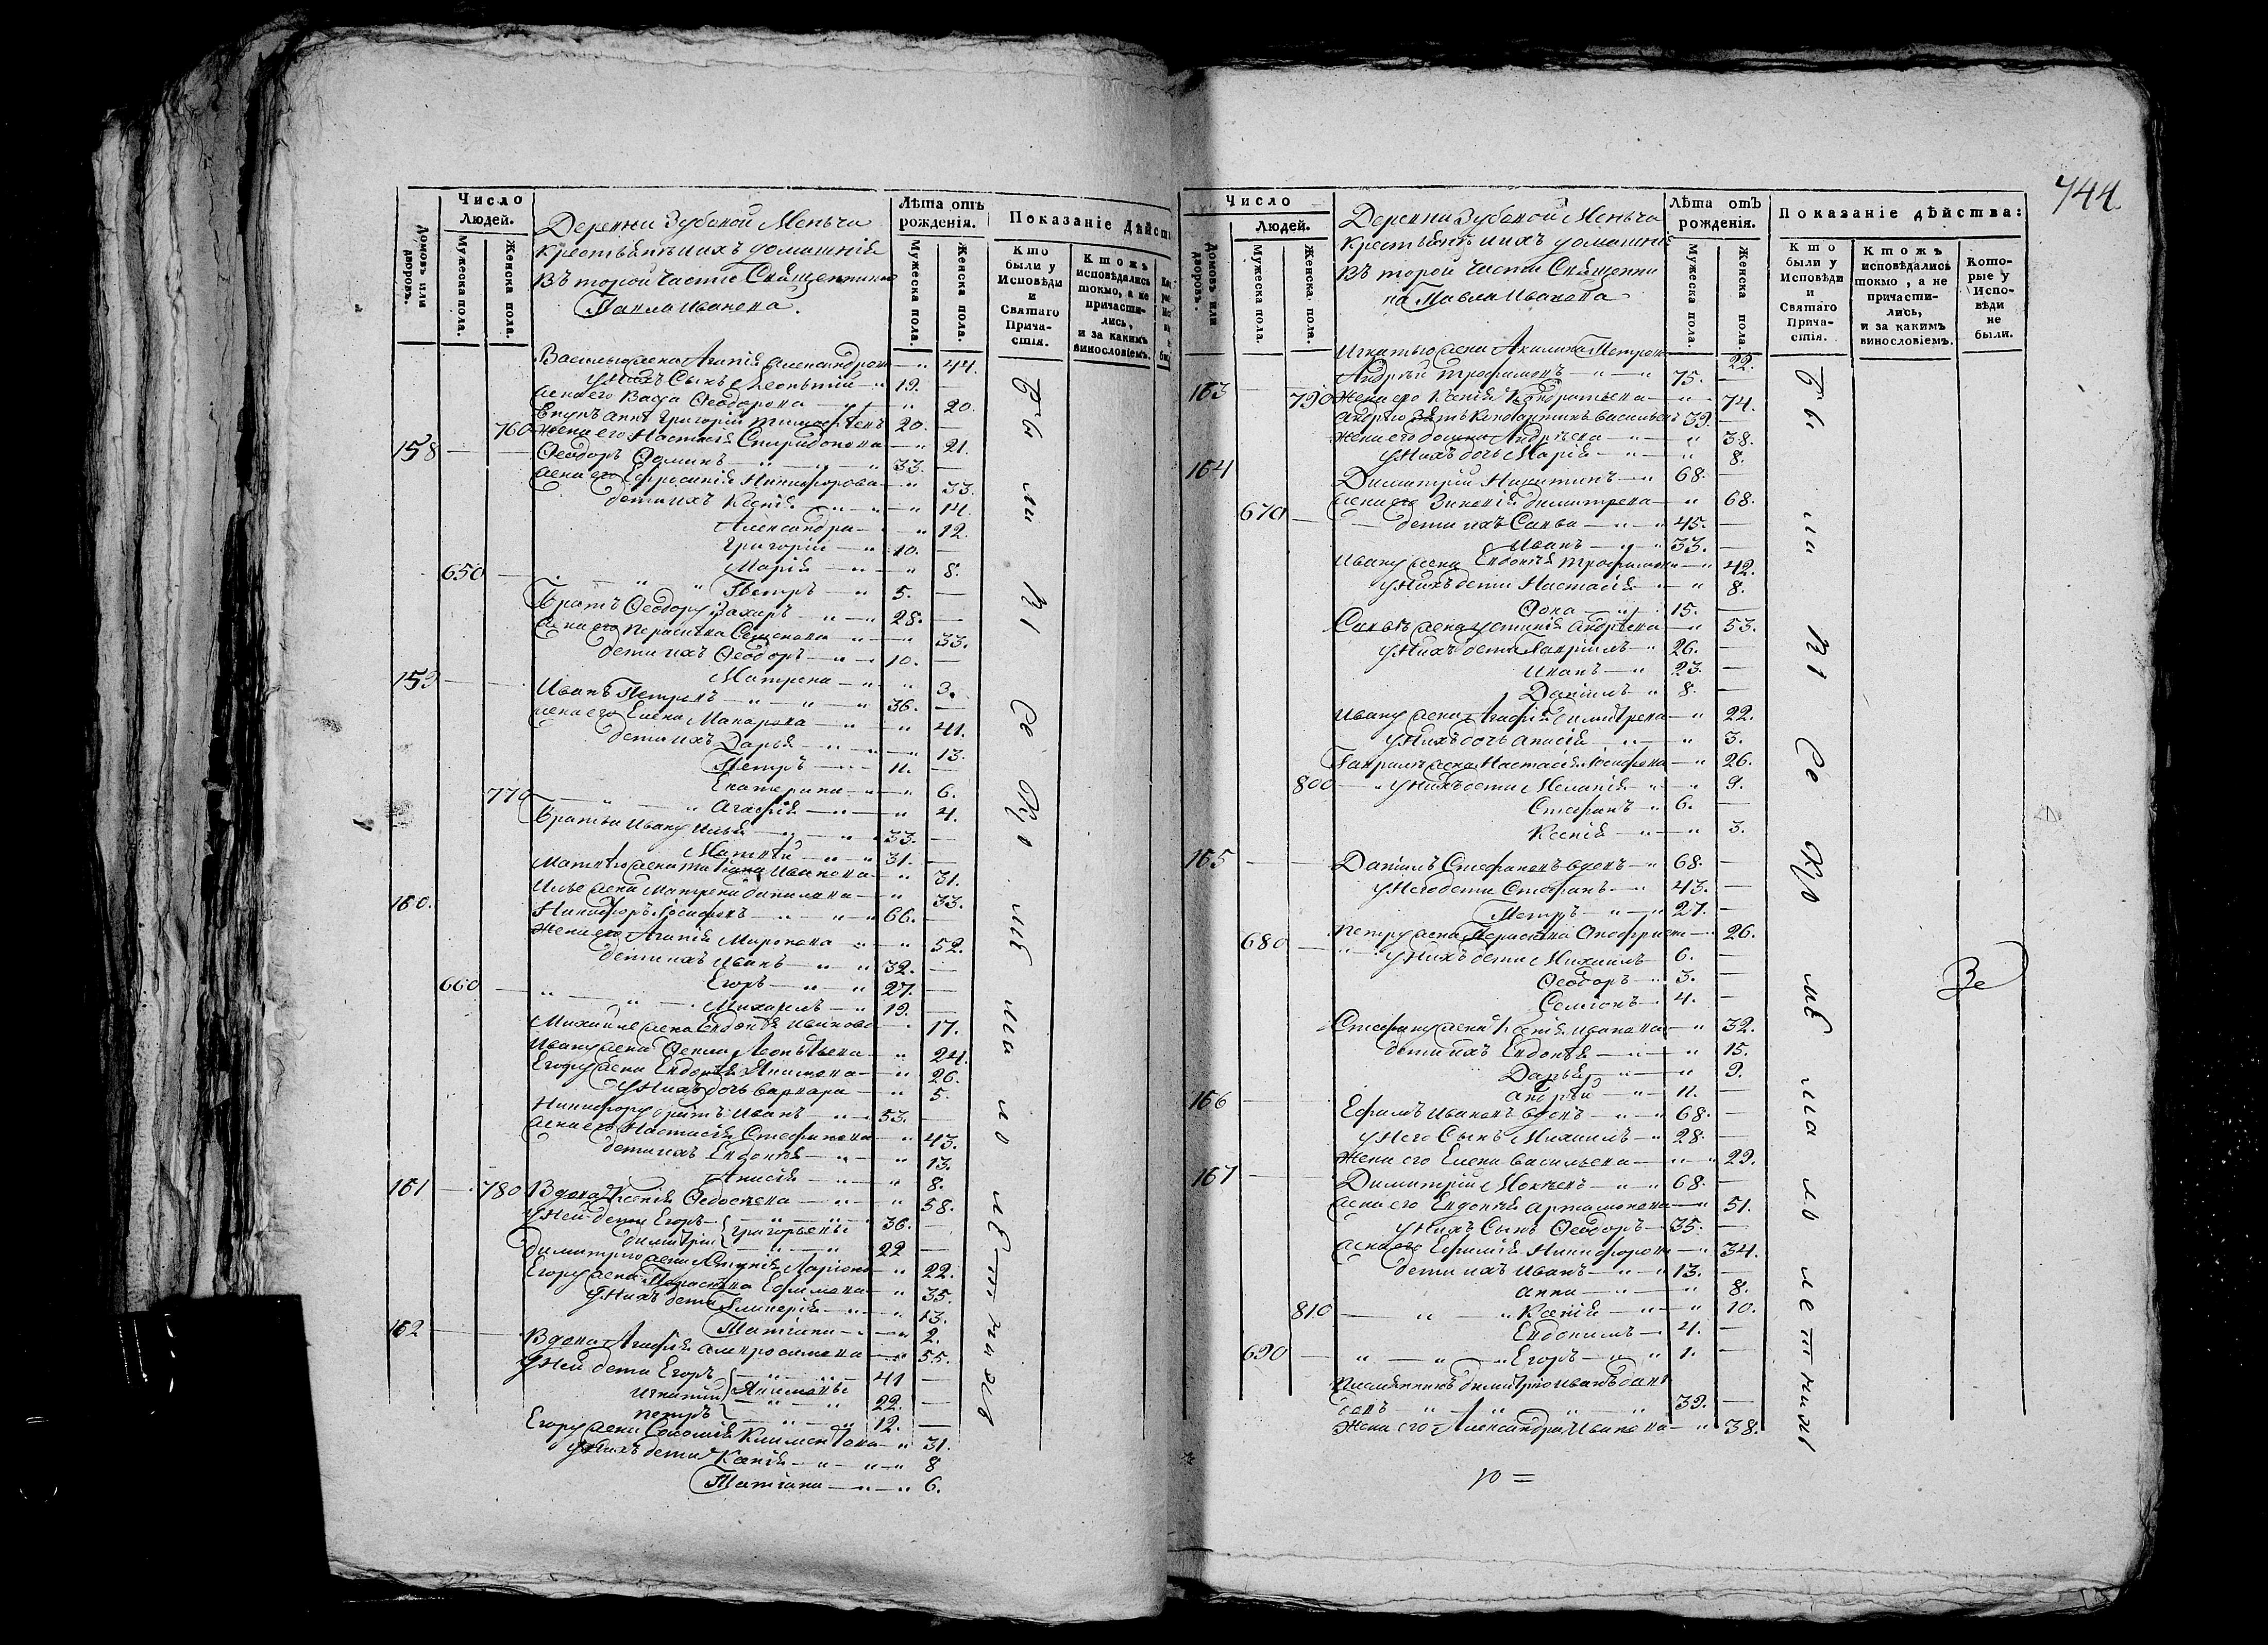 Число
Людей.
Домовъ или дворовъ.
Мужеска пола.
Женска пола.
Деревни Зубовой Меньча
крестьянъ ихъ домашнiя
въ второй части Священника
Павла Иванова.
Лѣта отъ
рожденiя.
Мужеска пола.
Женска пола.
Показанiе Дѣйст
Кто
были у
Исповѣди
и
Святаго
Прича-
стiя.
Ктожъ
исповѣдались
токмо, а не
причасти-
лись,
и за какимъ
винословiемъ.
Василью жена Агапiя Александрова — „ 44.
у нихъ Сынъ Леонтiй „ 19. —
жена его Васса Ѳеодорова — „ „ 20.
Внукъ Григорiй Тимофѣевъ 20. —
760 жена его Настасiя Спиридонова — „ 21.
158 — — Ѳеодоръ Ѳоминъ „ — „ — „ 33. —
жена его Ефросинiя Никифорова — „ 33.
дети ихъ Ксенiя „ — „ — „ 14.
Александра — „ 12.
Григорiй — „ 10. —
Марiя — „ — „ 8.
650 — „ „ Петръ — „ 5. —
Братъ Ѳеодору Захаръ „ — „ 28. —
жена его Парасковiя Семенова „ — „ 33.
дети ихъ Ѳеодоръ — „ — 10. —
Матрена — „ „ 3.
159 — Иванъ Петровъ „ — „ — „ 36. —
жена его Елена Макарова — „ — „ 41.
дети ихъ Дарья — „ — „ 13.
Петръ — „ — 11. —
Екатерина — „ — „ 6.
770 — „ „ Агафiя — „ — „ 4.
Братья Ивану Илья — „ — „ 33. —
Матвѣй — „ — „ 31. —
Матвѣю жена Татiана Иванова — „ 31.
Илье жена Матрена Данилова — „ 33.
160. Никифоръ Iосифовъ — „ — „ 66. —
Жена его Агапiя Миронова „ — „ 52.
дети ихъ Иванъ — „ — „ 32. —
Егоръ — „ — „ 27. —
660 — „ — „ — Михаилъ — „ 19. —
Михайле жена Евдокiя Иванова — „ 17.
Ивану жена Ѳекла Леонтьева — „ 24.
Егору жена Евдокiя Якимова — „ 26.
у нихъ дочь Варвара — „ 5.
Никифору братъ Иванъ — „ — 53. —
жена его Настасiя Стефанова — „ 43.
дети ихъ Евдокiя — „ — „ 13.
Анисiя — „ — „ 8.
161 — 780 Вдова Ксенiя Ѳедосѣева — „ — „ 58.
у ней дети Егоръ — } Григорьевы „ 36. —
Димитрiй } — „ — „ 22 —
Димитрiю жена Ларiонова — „ 22.
Егору жена Парасковiя Ефимова — „ 35.
у нихъ дети Гликерiя — „ — „ 13.
Татiана — „ — „ 2.
162 — Вдова Агафiя Амвросимова — „ 55.
у ней дети Егоръ } — „ — „ 41 —
Игнатiй } Якимовы „ 22. —
Петръ } — „ — „ 12. —
Егору жена Соломiя Климентова — „ 31.
у нихъ дети Ксенiя — „ — „ 8
Татiана — „ — „ 6.
Были вси Се Куо
744
Число
Людей.
Домовъ или дворовъ.
Мужеска пола.
Женска пола.
Деревни Зубовой Меньча
крестьянъ ихъ домашнi
въ второй части Священни
ка Павла Иванова
Лѣта отъ
рожденiя.
Мужеска пола.
Женска пола.
Показанiе дѣйства:
Кто
были у
Исповѣди
и
Святаго
Прича-
стiя.
Ктожъ
исповѣдались
токмо, а не
причасти-
лись,
и за какимъ
винословiемъ.
Кото-
рые у
Испо-
вѣди
не
были.
Игнатью жена Акилина Петрова 22.
163 — Андрей Трофимовъ — „ — „ 75. —
790 Жена его Ксенiя Кондратьева — „ 74.
Андрею зять Кондратинъ Васильевъ 39. —
Жена его Домна Андрѣева — „ 38.
у нихъ дочь Марiя — „ — „ 8.
164 Димитрiй Никитинъ — „ 68. —
жена его Зиновiя Димитрева — „ 68.
670 — дети ихъ Савва — „ — „ 45. —
Иванъ — „ — „ 33. —
Ивану жена Евдокiя Трофимова „ — „ 42.
у нихъ дети Настасiя „ — „ 8.
Ѳока — „ — 15. —
Саввѣ жена Устинiя Андрѣева — „ 53.
у нихъ дети Гаврiилъ — „ 26. —
Иванъ — „ 23. —
Данiилъ — „ 8. —
Ивану жена Агафiя Димитрева — „ 22.
у нихъ дочь Анисiя — „ — „ 3.
Гаврилѣ жена Настасiя Iосифова — „ 26.
800 — „ у нихъ дети Меланiя „ — „ 9.
Стефанъ — „ 6. —
Ксенiя — „ — „ 3.
165 — — Данiилъ Стефановъ вдовъ — „ 68. —
у него дети Стефанъ — „ 43. —
Петръ — „ — „ 27. —
Петру жена Парасковiя Онофриева — „ 26.
680 — „ — у нихъ дети Михаилъ 6. —
Ѳеодоръ „ 3. —
Семiонъ „ 4. —
Стефану жена Ксенiя Иванова — „ 32.
дети ихъ Евдокiя — „ — „ 15.
Дарья — „ — „ 9.
Андрей — „ 11. —
166 — Ефимъ Ивановъ вдовъ — „ — „ 68. —
у него Сынъ Михаилъ — „ 28. —
Жена его Елена Васильева — „ — „ 29.
167 — Димитрiй Мокѣевъ — „ — „ 68. —
жена его Евдокiя Артамонова — „ 51.
у нихъ Сынъ Ѳеодоръ — 35. —
жена его Ефимiя Никифорова — „ 34.
дети ихъ Иванъ — „ — „ 13. —
Анна — „ — „ 8.
810 — „ — „ Ксенiя — „ — „ 10.
Евдокимъ — 4. —
690 — „ — „ — „ Егоръ — „ — „ 1. —
Племянникъ Димитрiю Иванъ
„ „ „ „ 39. —
Жена его Александра Иванова — „ 38.